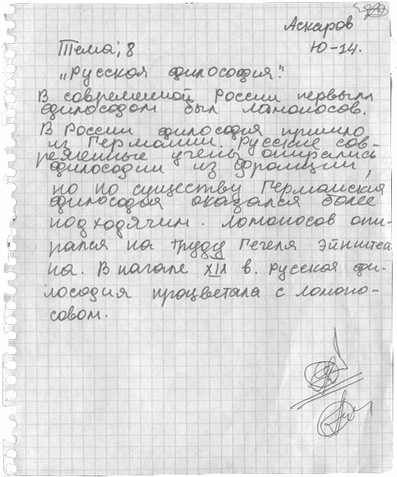 Аскаров
Тема; 8 Ю-14.
„Русская философия."
В современной России первым
философом был Ломоносов.
В России философия пришло
из Германии. Русские сов-
ременные учены опирались
философии из Франции,
но по существу Германская
философия оказался более
подходячим. Ломоносов опи-
рался на труду Гегеля Эйнштей
на. В начале XIX в. русская фи-
лософия процветала с Ломоно-
совом.